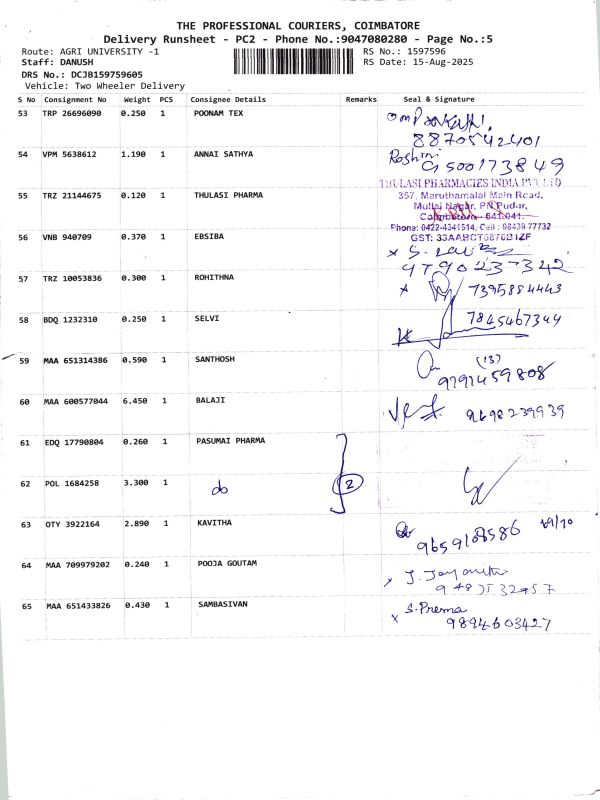 THE PROFESSIONAL COURIERS, COIMBATORE
Delivery Runsheet - PC2 - Phone No.:9047080280 - Page No.:5
Route: AGRI UNIVERSITY -1 RS No.: 1597596
Staff: DANUSH RS Date: 15-Aug-2025
DRS No.: DCJB159759605
Vehicle: Two Wheeler Delivery
S No Consignment No Weight PCS Consignee Details Remarks Seal & Signature
53 TRP 26696090 0.250 1 POONAM TEX
8870542401
54 VPM 5638612 1.190 1 ANNAI SATHYA Roshni 9500173849
55 TRZ 21144675 0.120 1 THULASI PHARMA
THULASI PHARMACIES INDIA PVT LTD
357, Maruthamalai Main Road,
Mullai Nagar, PN Pudur,
Coimbatore - 641 041.
Phone: 0422-4341514, Cell : 98439 77732
GST: 33AABCT6876B1ZF
56 VNB 940709 0.370 1 EBSIBA
9790237342
57 TRZ 10053836 0.300 1 ROHITHNA x 7395854443
58 BDQ 1232310 0.250 1 SELVI 7845467344
59 MAA 651314386 0.590 1 SANTHOSH (13)
9791459808
60 MAA 600577044 6.450 1 BALAJI 9698239939
61 EDQ 17790804 0.260 1 PASUMAI PHARMA
62 POL 1684258 3.300 1 do 2
63 OTY 3922164 2.890 1 KAVITHA
9659108586
64 MAA 709979202 0.240 1 POOJA GOUTAM x J. Jayanthi
65 MAA 651433826 0.430 1 SAMBASIVAN x S. Prema
9894603427